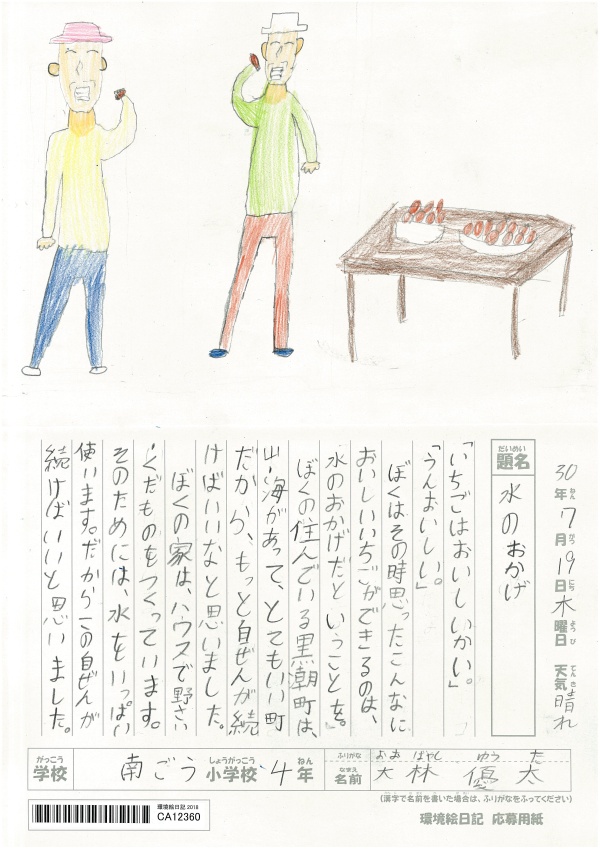 30年ねん7月がつ19日にち木曜日ようび 天気てんき晴れ
題名だいめい 水のおかげ
「いちごはおいしいかい。」
「うんおいしい。」
ぼくはその時思ったこんなに
おいしいいちごができるのは、
水のおかげだということを。
ぼくの住んでいる黒潮町は、
山・海があって、とてもいい町
だから、もっと自ぜんが続
けばいいなと思いました。
ぼくの家は、ハウスで野さい
・くだものをつくっています。
そのためには、水をいっぱい
使います。だからこの自ぜんが
続けばいいと思いました。
がっこう しょうがっこう ねん
学校 南ごう小学校 4年
ふりがな おおばやし ゆうた
なまえ
名前 大林 優太
(漢字で名前を書いた場合は、ふりがなをふってください)
環境絵日記 応募用紙
環境絵日記 2018
CA12360